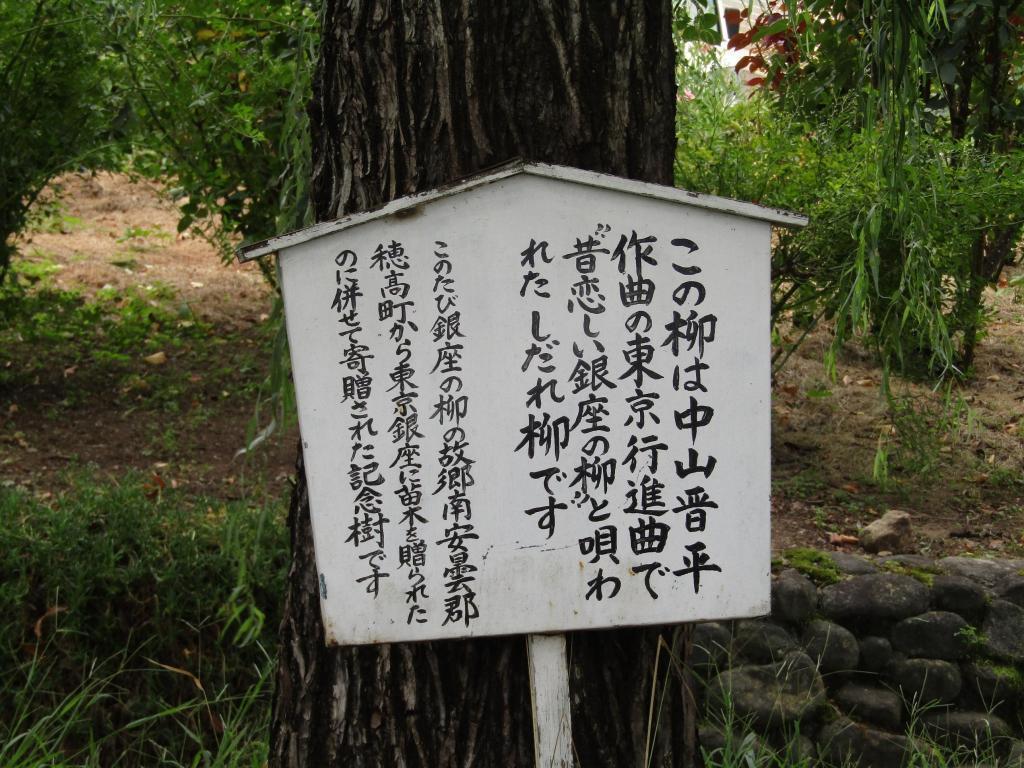 この柳は中山晋平
作曲の東京行進曲で
“昔恋しい銀座の柳”と唄わ
れた しだれ柳です
このたび銀座の柳の故郷南安曇郡
穂高町から東京銀座に苗木を贈られた
のに併せて寄贈された記念樹です